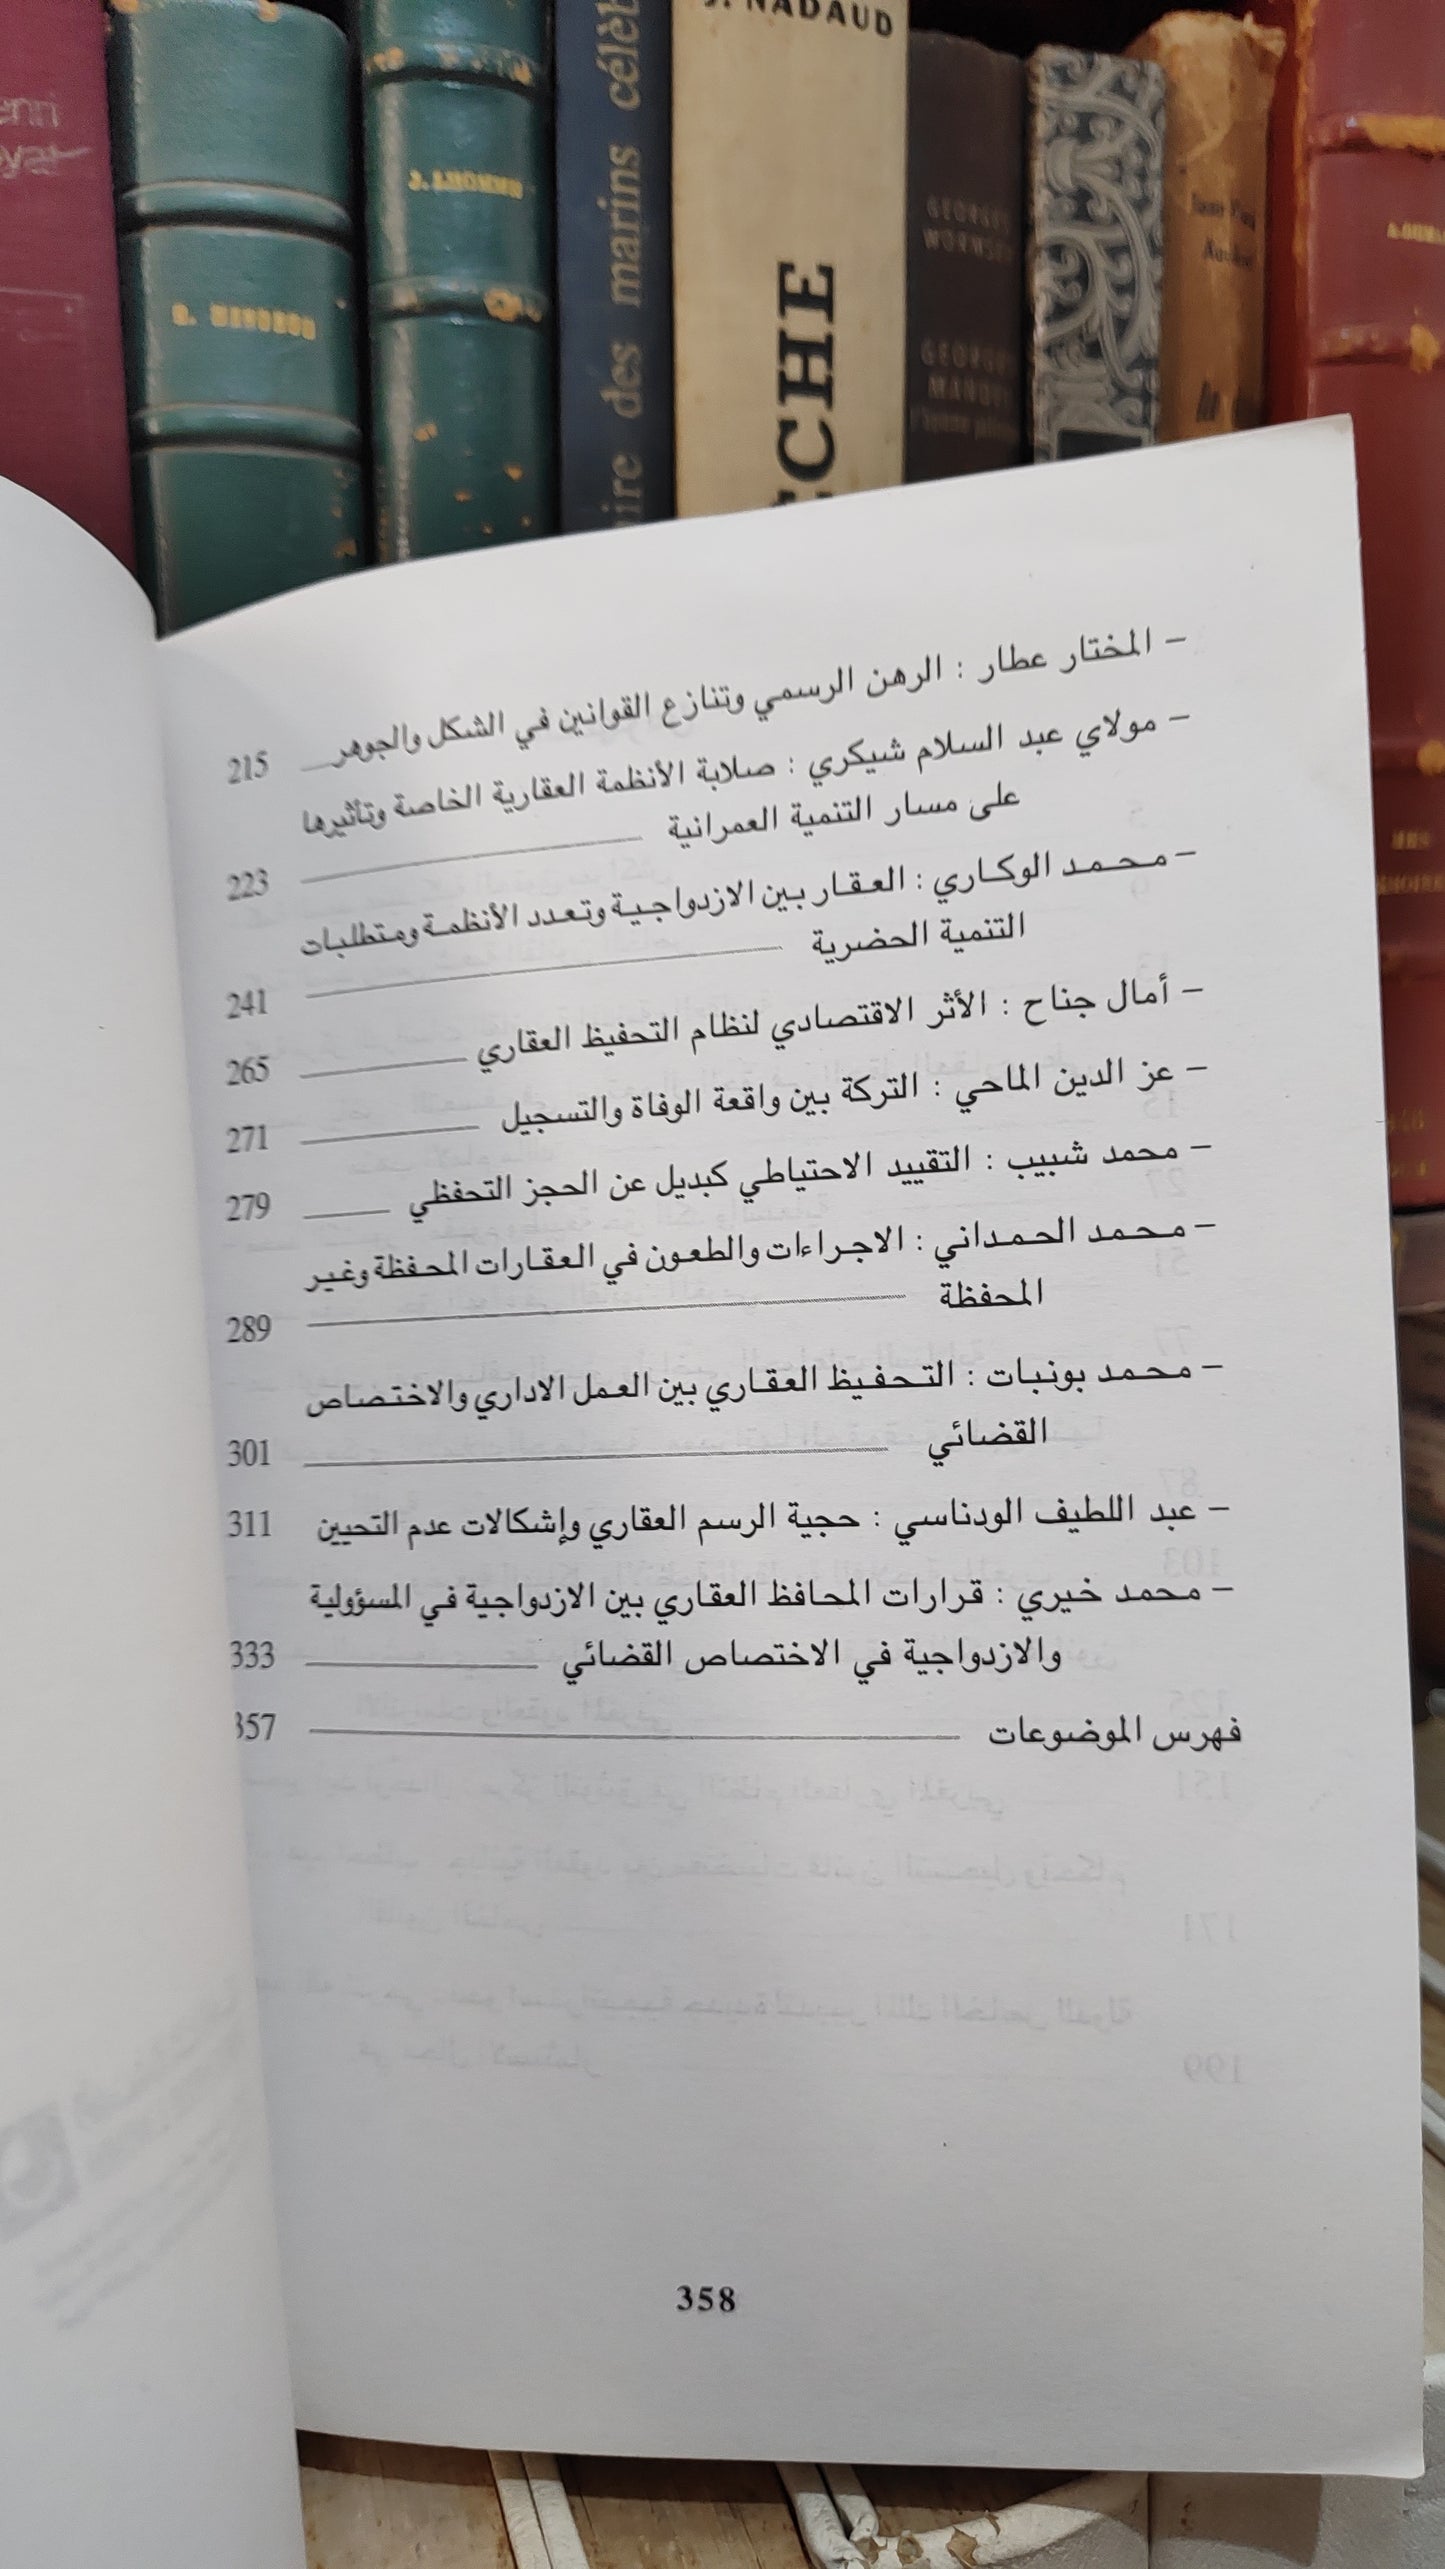 J. NADAUD
J. LHOMME
ire des marins célèb
CHE
GEORGES
WORMSER
GEORGES
MANDEL
– المختار عطار : الرهن الرسمي وتنازع القوانين في الشكل والجوهر 215
– مولاي عبد السلام شيكري : صلابة الأنظمة العقارية الخاصة وتأثيرها
على مسار التنمية العمرانية 223
– محمد الوكاري : العقار بين الازدواجية وتعدد الأنظمة ومتطلبات
التنمية الحضرية 241
– أمال جناح : الأثر الاقتصادي لنظام التحفيظ العقاري 265
– عز الدين الماحي : التركة بين واقعة الوفاة والتسجيل 271
– محمد شبيب : التقييد الاحتياطي كبديل عن الحجز التحفظي 279
– محمد الحمداني : الاجراءات والطعون في العقارات المحفظة وغير
المحفظة 289
– محمد بونبات : التحفيظ العقاري بين العمل الاداري والاختصاص
القضائي 301
– عبد اللطيف الودناسي : حجية الرسم العقاري وإشكالات عدم التحيين 311
– محمد خيري : قرارات المحافظ العقاري بين الازدواجية في المسؤولية
والازدواجية في الاختصاص القضائي 333
فهرس الموضوعات 357
358